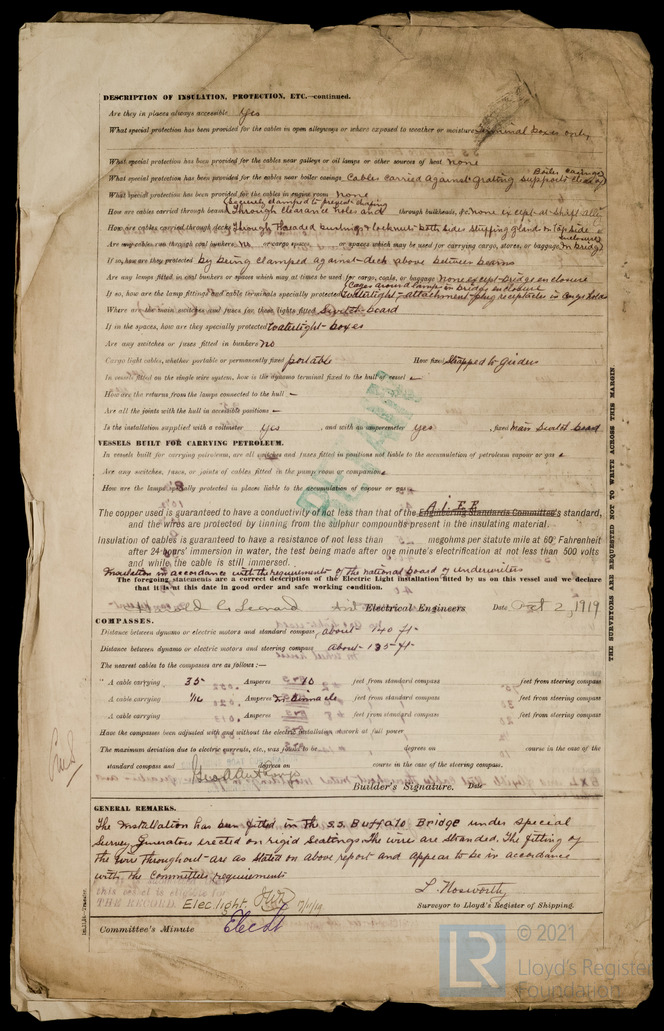 DESCRIPTION OF INSULATION, PROTECTION, ETC.—continued.
Are they in places always accessible Yes
What special protection has been provided for the cables in open alleyways or where exposed to weather or moisture terminal boxes only
What special protection has been provided for the cables near galleys or oil lamps or other sources of heat None
Boiler casings
What special protection has been provided for the cables near boiler casings Cables carried against grating supports
What special protection has been provided for the cables in engine room None
(Securely clamped to prevent
How are cables carried through beams Through clearance holes and through bulkheads, &c. None except at Shaft Alley
How are cables carried through decks Through threaded bushings & locknut both sides stuffing glands in
Are any cables run through coal bunkers No or cargo spaces or spaces which may be used for carrying cargo, stores, or baggage in bridge
If so, how are they protected by being clamped against deck above between beams
Are any lamps fitted in coal bunkers or spaces which may at times be used for cargo, coals, or baggage None except bridge enclosure
(Cages around lamp in bridge enclosure
If so, how are the lamp fittings and cable terminals specially protected (watertight attachment plug receptacles in cargo holds
Where are the main switches and fuses for these lights fitted Switch board
If in the spaces, how are they specially protected Watertight boxes
Are any switches or fuses fitted in bunkers No
Cargo light cables, whether portable or permanently fixed portable How fixed Strapped to girders
In vessels fitted on the single wire system, how is the dynamo terminal fixed to the hull of vessel -
How are the returns from the lamps connected to the hull -
Are all the joints with the hull in accessible positions -
Is the installation supplied with a voltmeter Yes , and with an amperemeter Yes , fixed Main Switch board
VESSELS BUILT FOR CARRYING PETROLEUM.
In vessels built for carrying petroleum, are all switches and fuses fitted in positions not liable to the accumulation of petroleum vapour or gas
Are any switches, fuses, or joints of cables fitted in the pump room or companion
How are the lamps specially protected in places liable to the accumulation of vapour or gas
A.I.E.E.
The copper used is guaranteed to have a conductivity of not less than that of the Engineering Standards Committee's standard,
and the wires are protected by tinning from the sulphur compounds present in the insulating material.
Insulation of cables is guaranteed to have a resistance of not less than megohms per statute mile at 60° Fahrenheit
after 24 hours' immersion in water, the test being made after one minute's electrification at not less than 500 volts
and while the cable is still immersed.
Insulation in accordance with the requirements of the national board of underwriters
The foregoing statements are a correct description of the Electric Light installation fitted by us on this vessel and we declare
that it is at this date in good order and safe working condition.
Electrical Engineers Date Oct 2, 1919
COMPASSES.
Distance between dynamo or electric motors and standard compass about 140 ft-
Distance between dynamo or electric motors and steering compass about 135 ft
The nearest cables to the compasses are as follows:—
A cable carrying 35 Amperes 10 feet from standard compass feet from steering compass
A cable carrying 1/16 Amperes In Binnacle feet from standard compass feet from steering compass
A cable carrying Amperes feet from standard compass feet from steering compass
Have the compasses been adjusted with and without the electric installation at work at full power
The maximum deviation due to electric currents, etc., was found to be degrees on course in the case of the
standard compass and degrees on course in the case of the steering compass.
Builder's Signature. Date
THE SURVEYORS ARE REQUESTED NOT TO WRITE ACROSS THIS MARGIN.
GENERAL REMARKS.
The Installation has been fitted in the S.S. Buffalo Bridge under special
Survey Generators erected on rigid seatings The wire are stranded. The fitting of
the wire throughout are as stated on above report and appear to be in accordance
with the Committee's requirements
THE RECORD. Elec. light.
L. Hosworthy
Surveyor to Lloyd's Register of Shipping.
Committee's Minute
© 2021
LR
Lloyd's Register
Foundation